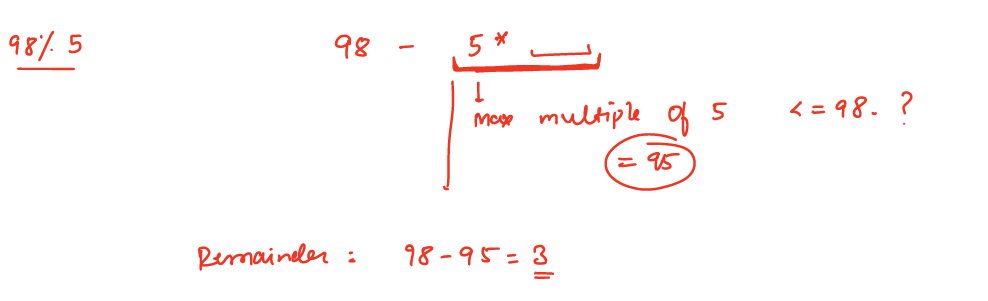 98% 5 98 - 5 * ___
max multiple of 5 <= 98. ?
= 95
Remainder : 98 - 95 = 3